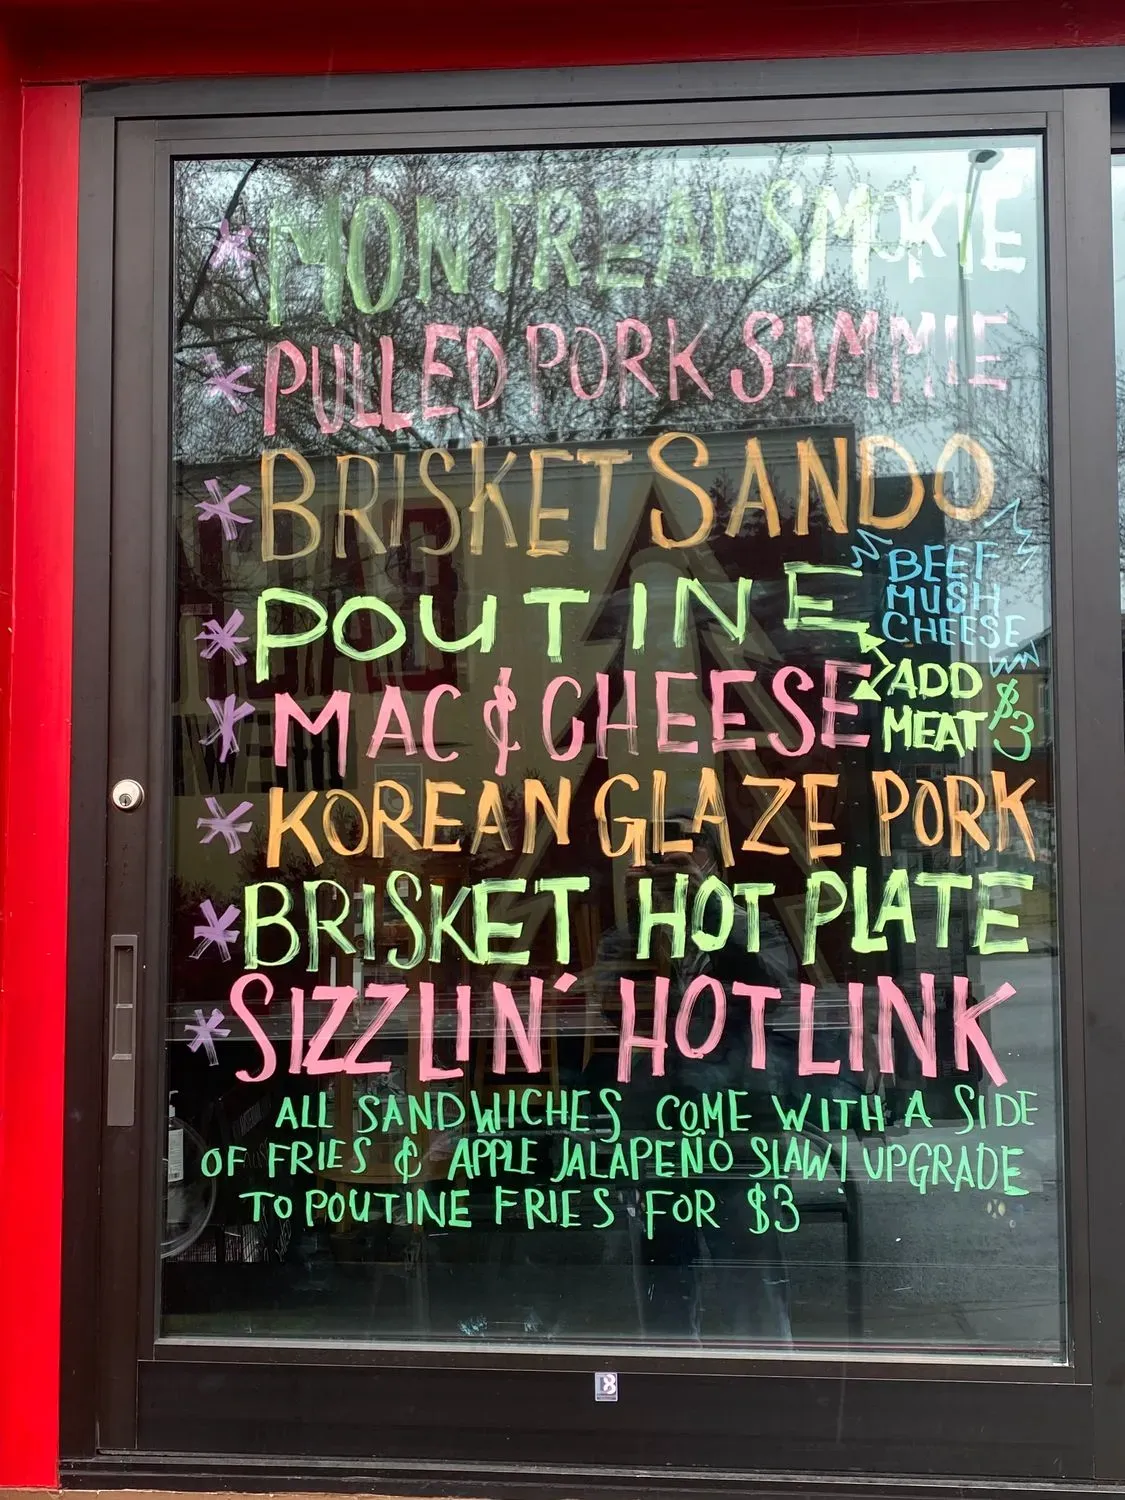 * MONTREAL SMOKIE
* PULLED PORK SAMMIE
* BRISKET SANDO
* POUTINE
BEEF
MUSH
CHEESE
* MAC & CHEESE
ADD
MEAT $3
* KOREAN GLAZE PORK
* BRISKET HOT PLATE
* SIZZLIN' HOTLINK
ALL SANDWICHES COME WITH A SIDE
OF FRIES & APPLE JALAPEÑO SLAW! UPGRADE
TO POUTINE FRIES FOR $3